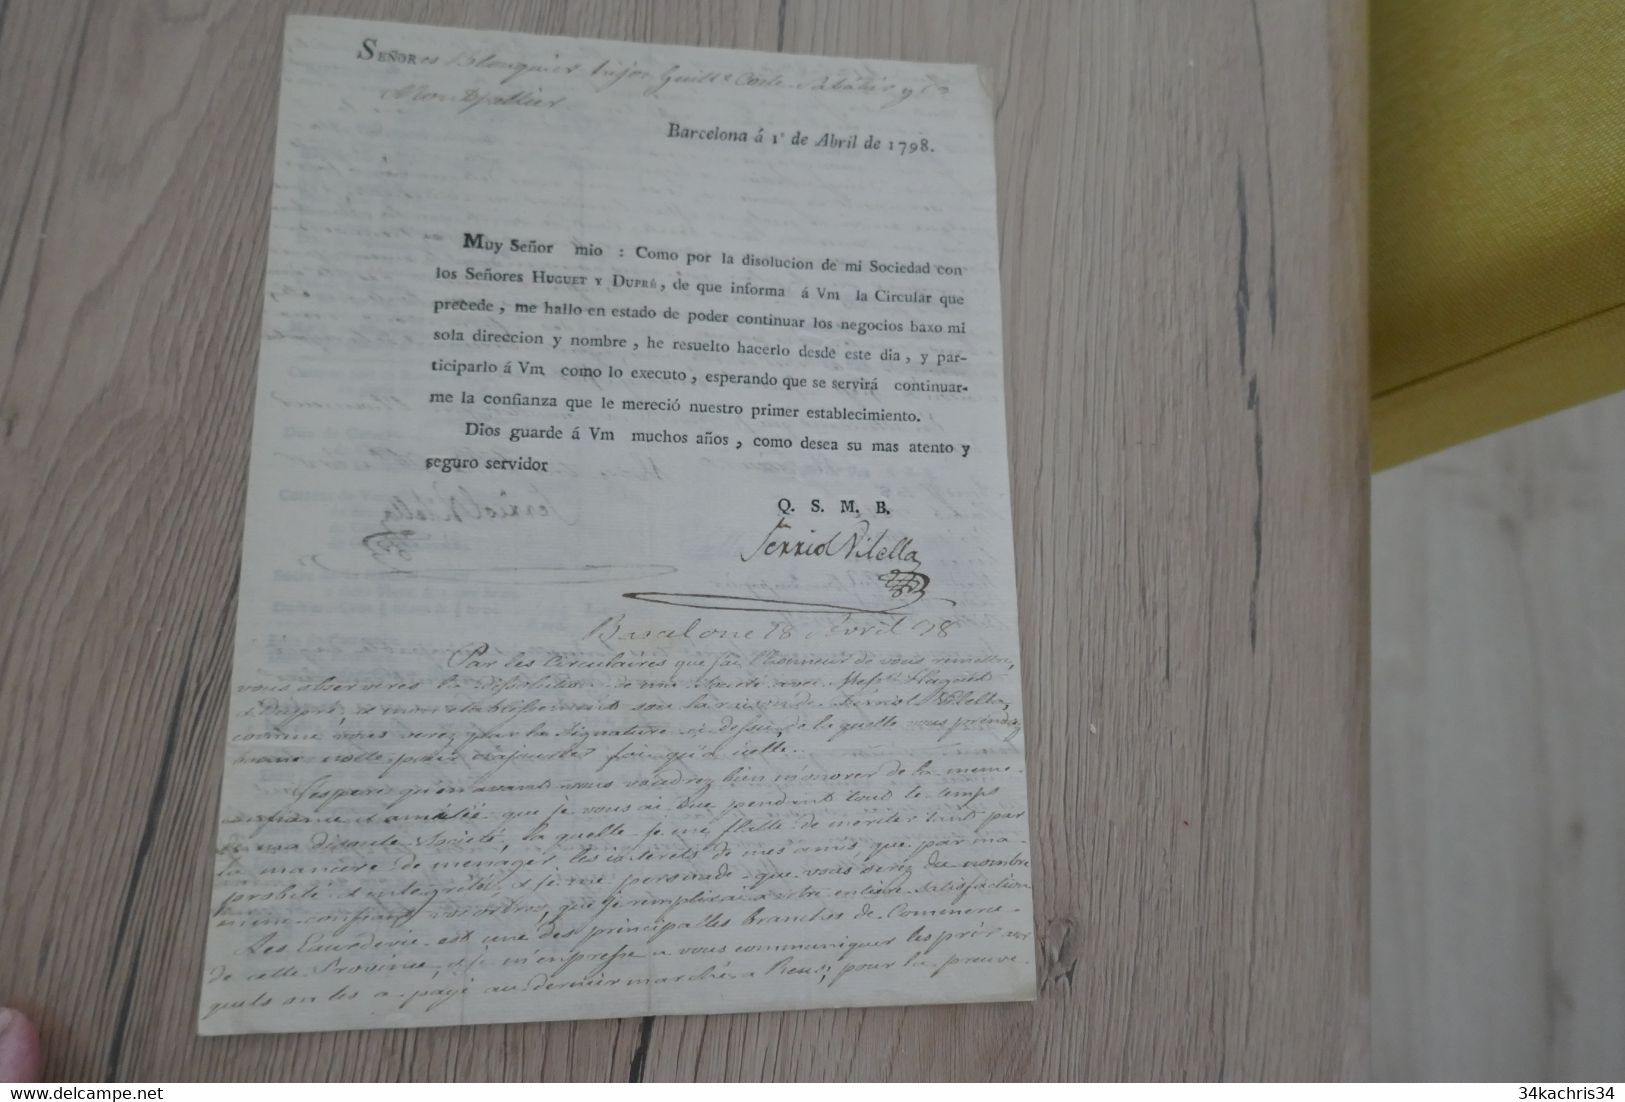 SEÑORes Blouquier hijos Guille Coste Sabatier y Ca
Montpellier
Barcelona á 1º de Abril de 1798.
Muy Señor mio : Como por la disolucion de mi Sociedad con
los Señores HUGUET Y DUPRÉ, de que informa á Vm la Circular que
precede, me hallo en estado de poder continuar los negocios baxo mi
sola direccion y nombre, he resuelto hacerlo desde este dia, y par-
ticiparlo á Vm como lo executo, esperando que se servirá continuar-
me la confianza que le mereció nuestro primer establecimiento.
Dios guarde á Vm muchos años, como desea su mas atento y
seguro servidor
Q. S. M. B.
Ferriol Vilella
Barcelone 28 Avril 98
Par les Circulaires que j'ai l'honneur de vous remettre,
vous observeres la dissolution de ma Societé avec Messrs Huguet
et Dupré, et mon etablissement sous la raison de Ferriol Vilella,
comme vous verez par la signature ci dessus, de la quelle vous prendrez
bonne notte pour n'ajouter foi qu'a icelle.
J'espere qu'en avant vous voudrez bien m'onorer de la meme
confiance et amitiée que je vous ai due pendant tout le temps
de ma disoute Societé, la quelle je me flatte de meriter tant par
la maniere de menager les interets de mes amis que par ma
probité et integrité, et je me persuade que vous serez du nombre
en me confiant vos ordres, que je remplirai a votre entiere satisfaction
Les Eaux de vie est une des principalles branches de Commerce
de cette Province, et je m'empresse a vous communiquer les prix aux
quels on les a payé au dernier marché a Reus; pour la preuve
34kachris34